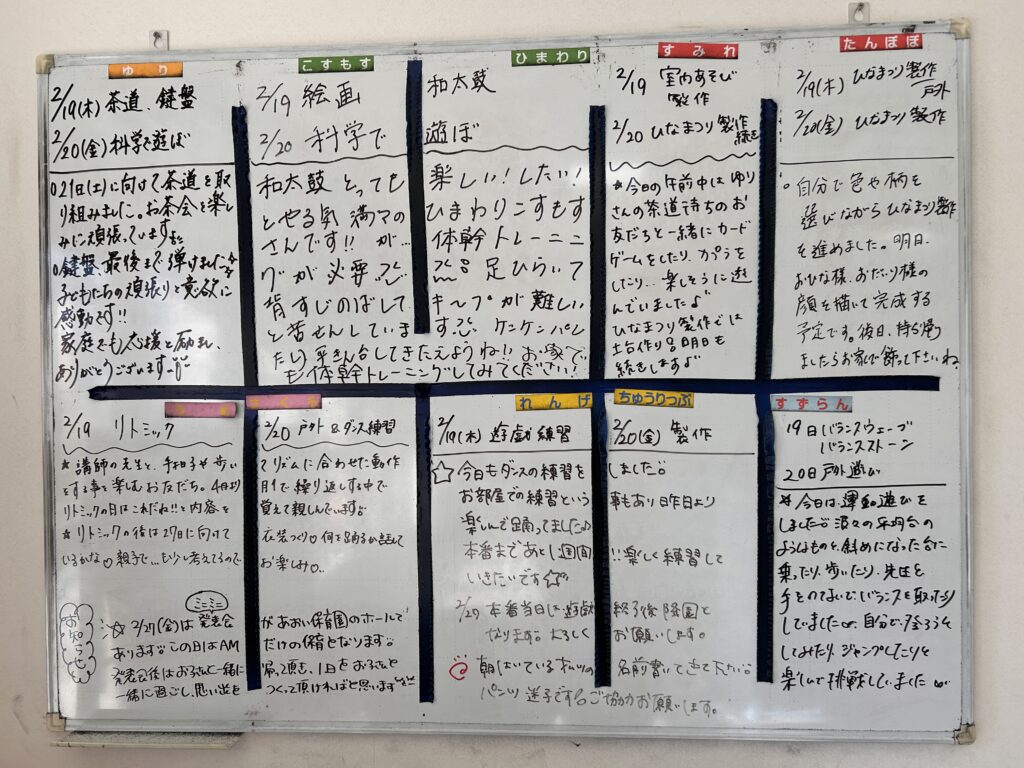 ゆり
2/19(木) 茶道、鍵盤
2/20(金) 科学で遊ぼ
○21日(土)に向けて茶道を取
り組みました。お茶会を楽し
みに頑張っています
○鍵盤、最後まで弾けました
子どもたちの頑張りと意欲に
感動です!!
家庭でも応援と励まし、
ありがとうございます
こすもす ひまわり
2/19 絵画 和太鼓
2/20 科学で 遊ぼ
和太鼓 とっても 楽しい!したい!
とやる気 満々の ひまわり こすもす
さんです!! が… 体幹トレーニン
グが必要 足ひらいて
背すじのばして キープが難しい
と苦せんしていま す ケンケンパし
たり 平きん台してきたえようね!! お家で
も体幹トレーニングしてみてください!
すみれ
2/19 室内あそび
製作
2/20 ひなまつり製作
続き
*今日の午前中はゆり
さんの茶道待ちのお
友だちと一緒にカード
ゲームをしたり、カプラを
したり… 楽しそうに遊
んでいました♪
ひなまつり製作では
土台作り 明日も
続きをします♪
たんぽぽ
2/19(木) ひなまつり製作
戸外
2/20(金) ひなまつり製作
○自分で色や柄を
選びながらひなまつり製作
を進めました。明日、
おひな様、おだいり様の
顔を描いて完成する
予定です。後日、持ち帰り
ましたらお家で飾って下さいね
2/19 リトミック 2/20 戸外 &ダンス練習
*講師の先生と、手拍子や歩い てリズムに合わせた動作
をする事を楽しむお友だち。4月より 月1で繰り返しする中で
リトミックの日はこれだね!!と内容を 覚えて親しんでいます
*リトミックの後は27日に向けて 衣装づくり♡何を踊るか話して
いるかな♡親子で…もう少し考えてるので お楽しみ♡
お知らせ
ミニミニ
☆2/27(金)は 発表会 があおい保育園のホールで
あります。この日はAM だけの保育となります。
発表会後はお子さんと一緒に 帰って頂き、1日をお子さんと
一緒に過ごし、思い出を つくって頂ければと思います
れんげ ちゅうりっぷ
2/19(木) 遊戯練習 2/20(金) 製作
☆今日もダンスの練習を しました。
お部屋での練習という 事もあり昨日より
楽しんで踊ってました♪
本番まであと1週間 !!楽しく練習して
いきたいです☆
2/27 本番当日は遊戯 終了後降園と
なります。よろしく お願いします。
朝はいているオムツの 名前書いて
パンツ 迷子です ご協力お願いします。
すずらん
19日バランスウェーブ
バランスストーン
20日戸外遊び
*今日は運動遊びを
しました 波々の平均台の
ようなものと、斜めになった台に
乗ったり、歩いたり、先生と
手をつないでバランスを取ったり
していました 自分で登ろうと
してみたり、ジャンプしたりと
楽しんで挑戦していました